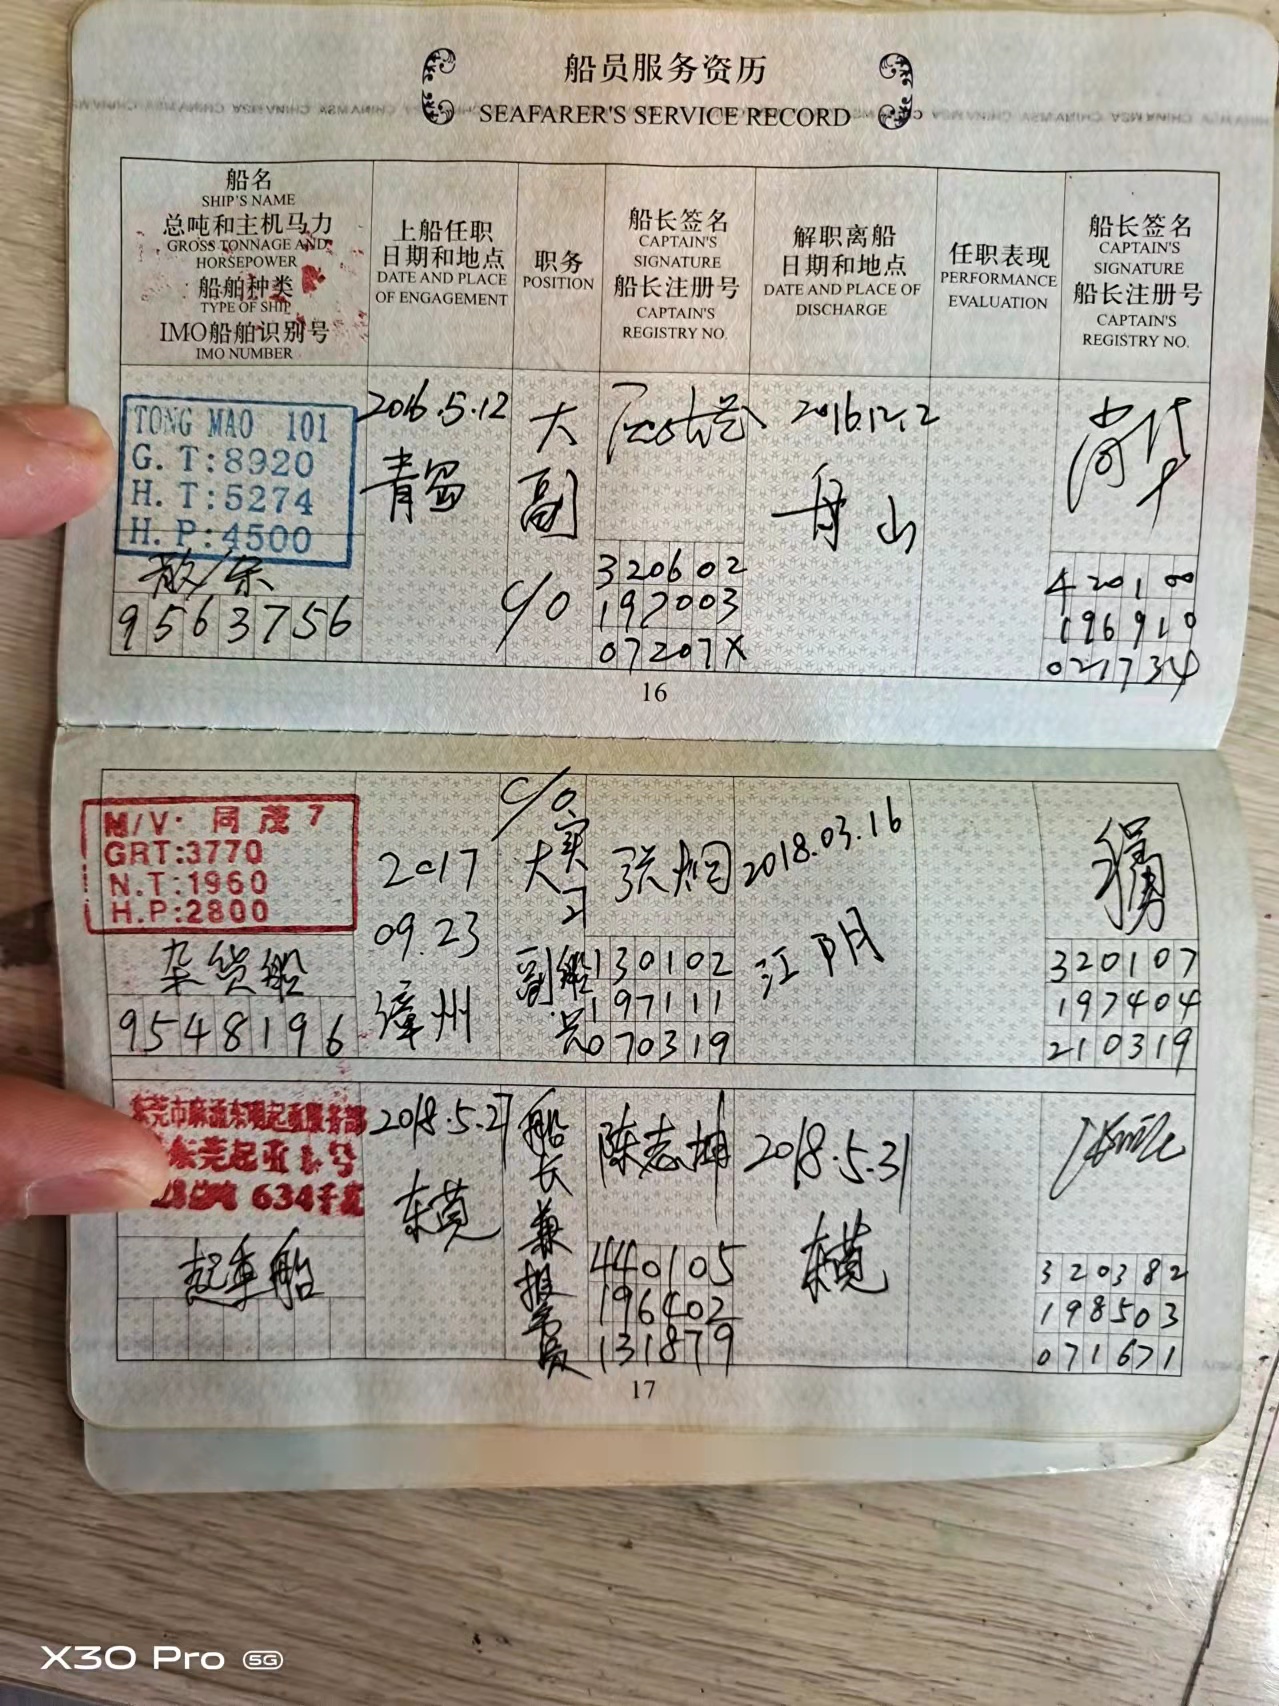 船员服务资历
SEAFARER'S SERVICE RECORD
船名
SHIP'S NAME
总吨和主机马力
GROSS TONNAGE AND
HORSEPOWER
船舶种类
TYPE OF SHIP
IMO船舶识别号
IMO NUMBER
上船任职
日期和地点
DATE AND PLACE
OF ENGAGEMENT
职务
POSITION
船长签名
CAPTAIN'S
SIGNATURE
船长注册号
CAPTAIN'S
REGISTRY NO.
解职离船
日期和地点
DATE AND PLACE OF
DISCHARGE
任职表现
PERFORMANCE
EVALUATION
船长签名
CAPTAIN'S
SIGNATURE
船长注册号
CAPTAIN'S
REGISTRY NO.
TONG MAO 101
G.T:8920
H.T:5274
H.P:4500
散/杂
9563756
2016.5.12
青岛
大
副
C/O
320602
197003
07207X
2016.12.2
舟山
420100
196910
021734
16
M/V· 同茂7
GRT:3770
N.T:1960
H.P:2800
杂货船
9548196
2017
09.23
漳州
C/O
大副
实习船员
130102
197111
070319
2018.03.16
江阴
320107
197404
210319
东莞起重1号
634千瓦
起重船
2018.5.27
东莞
船
长
兼
陈志坤
440105
196402
131879
2018.5.31
东莞
320382
198503
071671
17
X30 Pro 5G